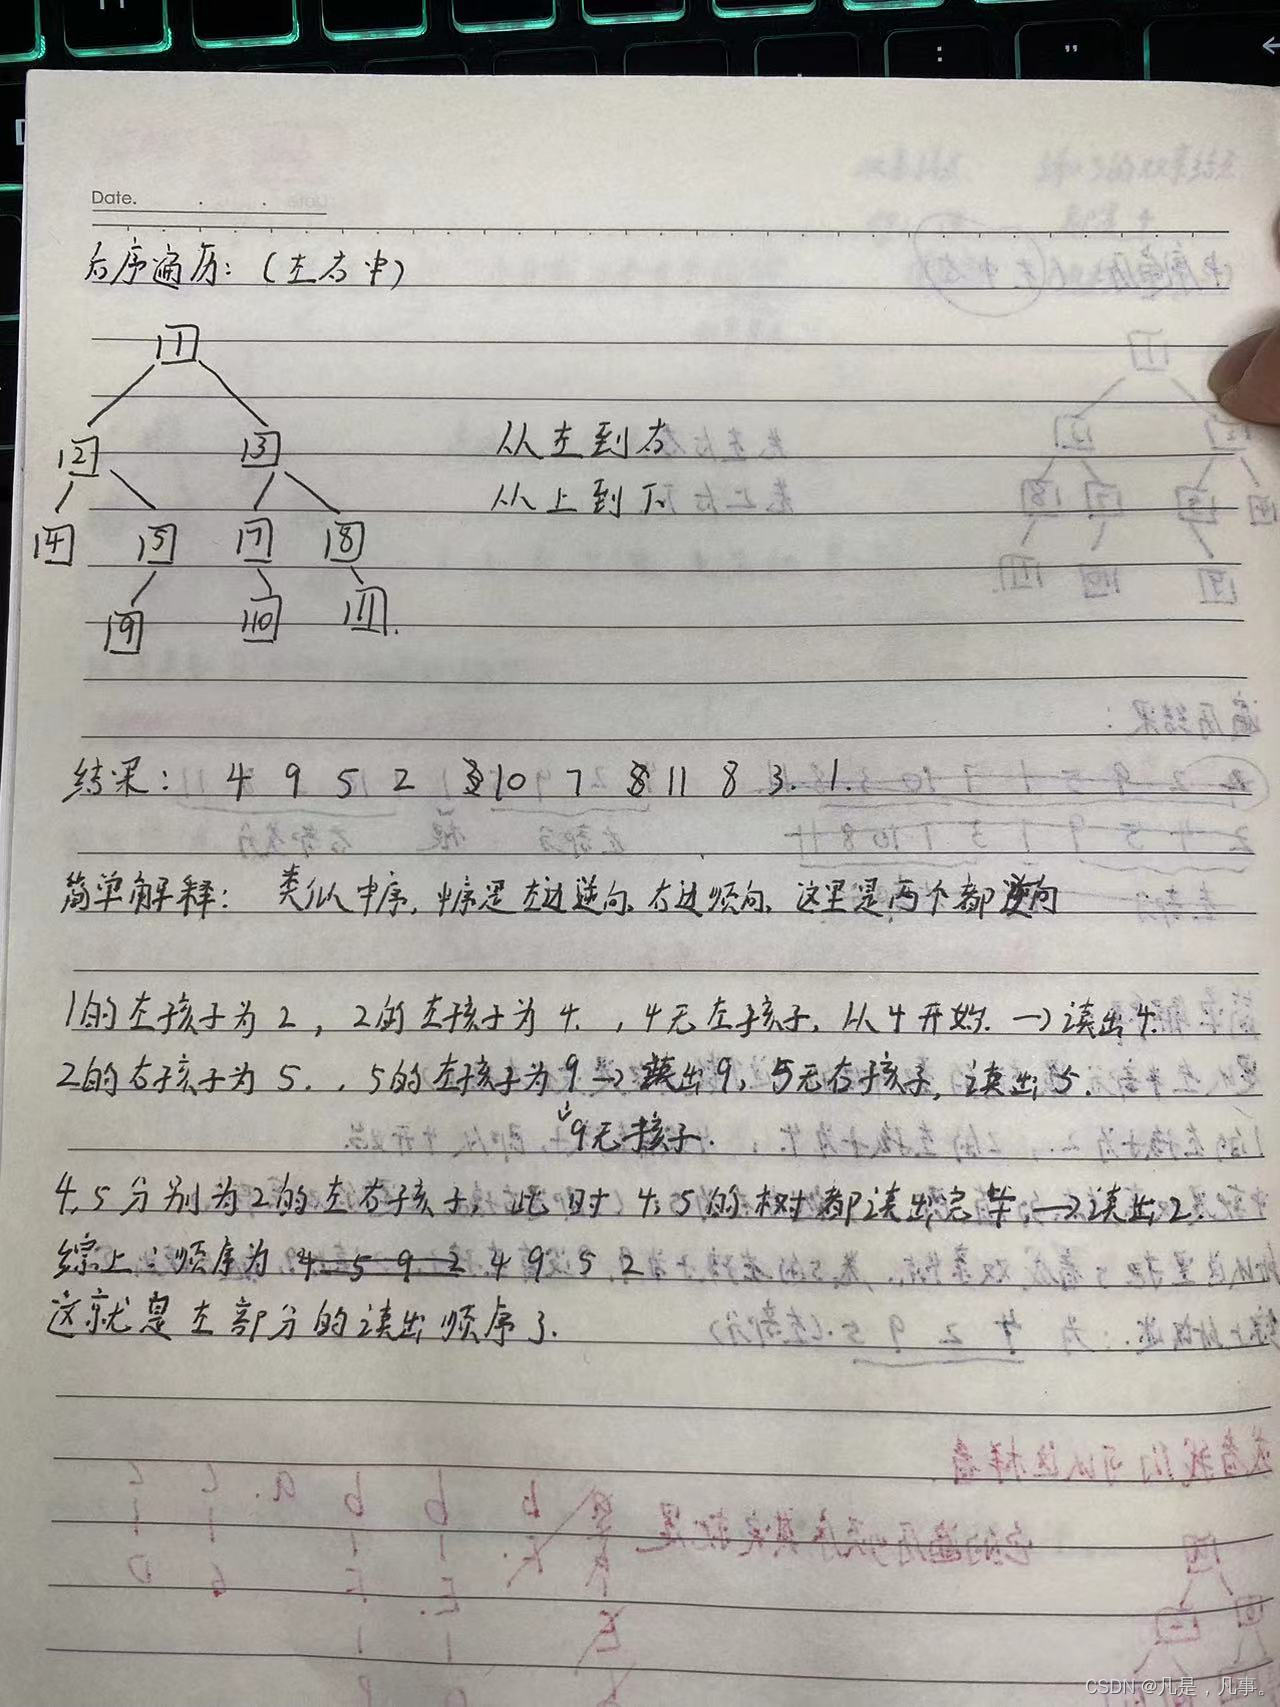 Date.
后序遍历：（左右中）
1
2 3
从左到右
从上到下
4 5 7 8
9 10 11.
结果： 4 9 5 2 10 7 11 8 3. 1.
简单解释： 类似中序，中序是左边逆向、右边顺向、这里是两个都逆向
1的左孩子为2，2的左孩子为4.，4无左孩子，从4开始.→读出4.
2的右孩子为5.，5的左孩子为9→读出9，5无右孩子，读出5.
↓9无孩子.
4,5分别为2的左右子孩子，此时4,5的树都读出完毕，→读出2.
综上：顺序为 4 5 9 2 4 9 5 2
这就是左部分的读出顺序了.
CSDN @凡是，凡事。